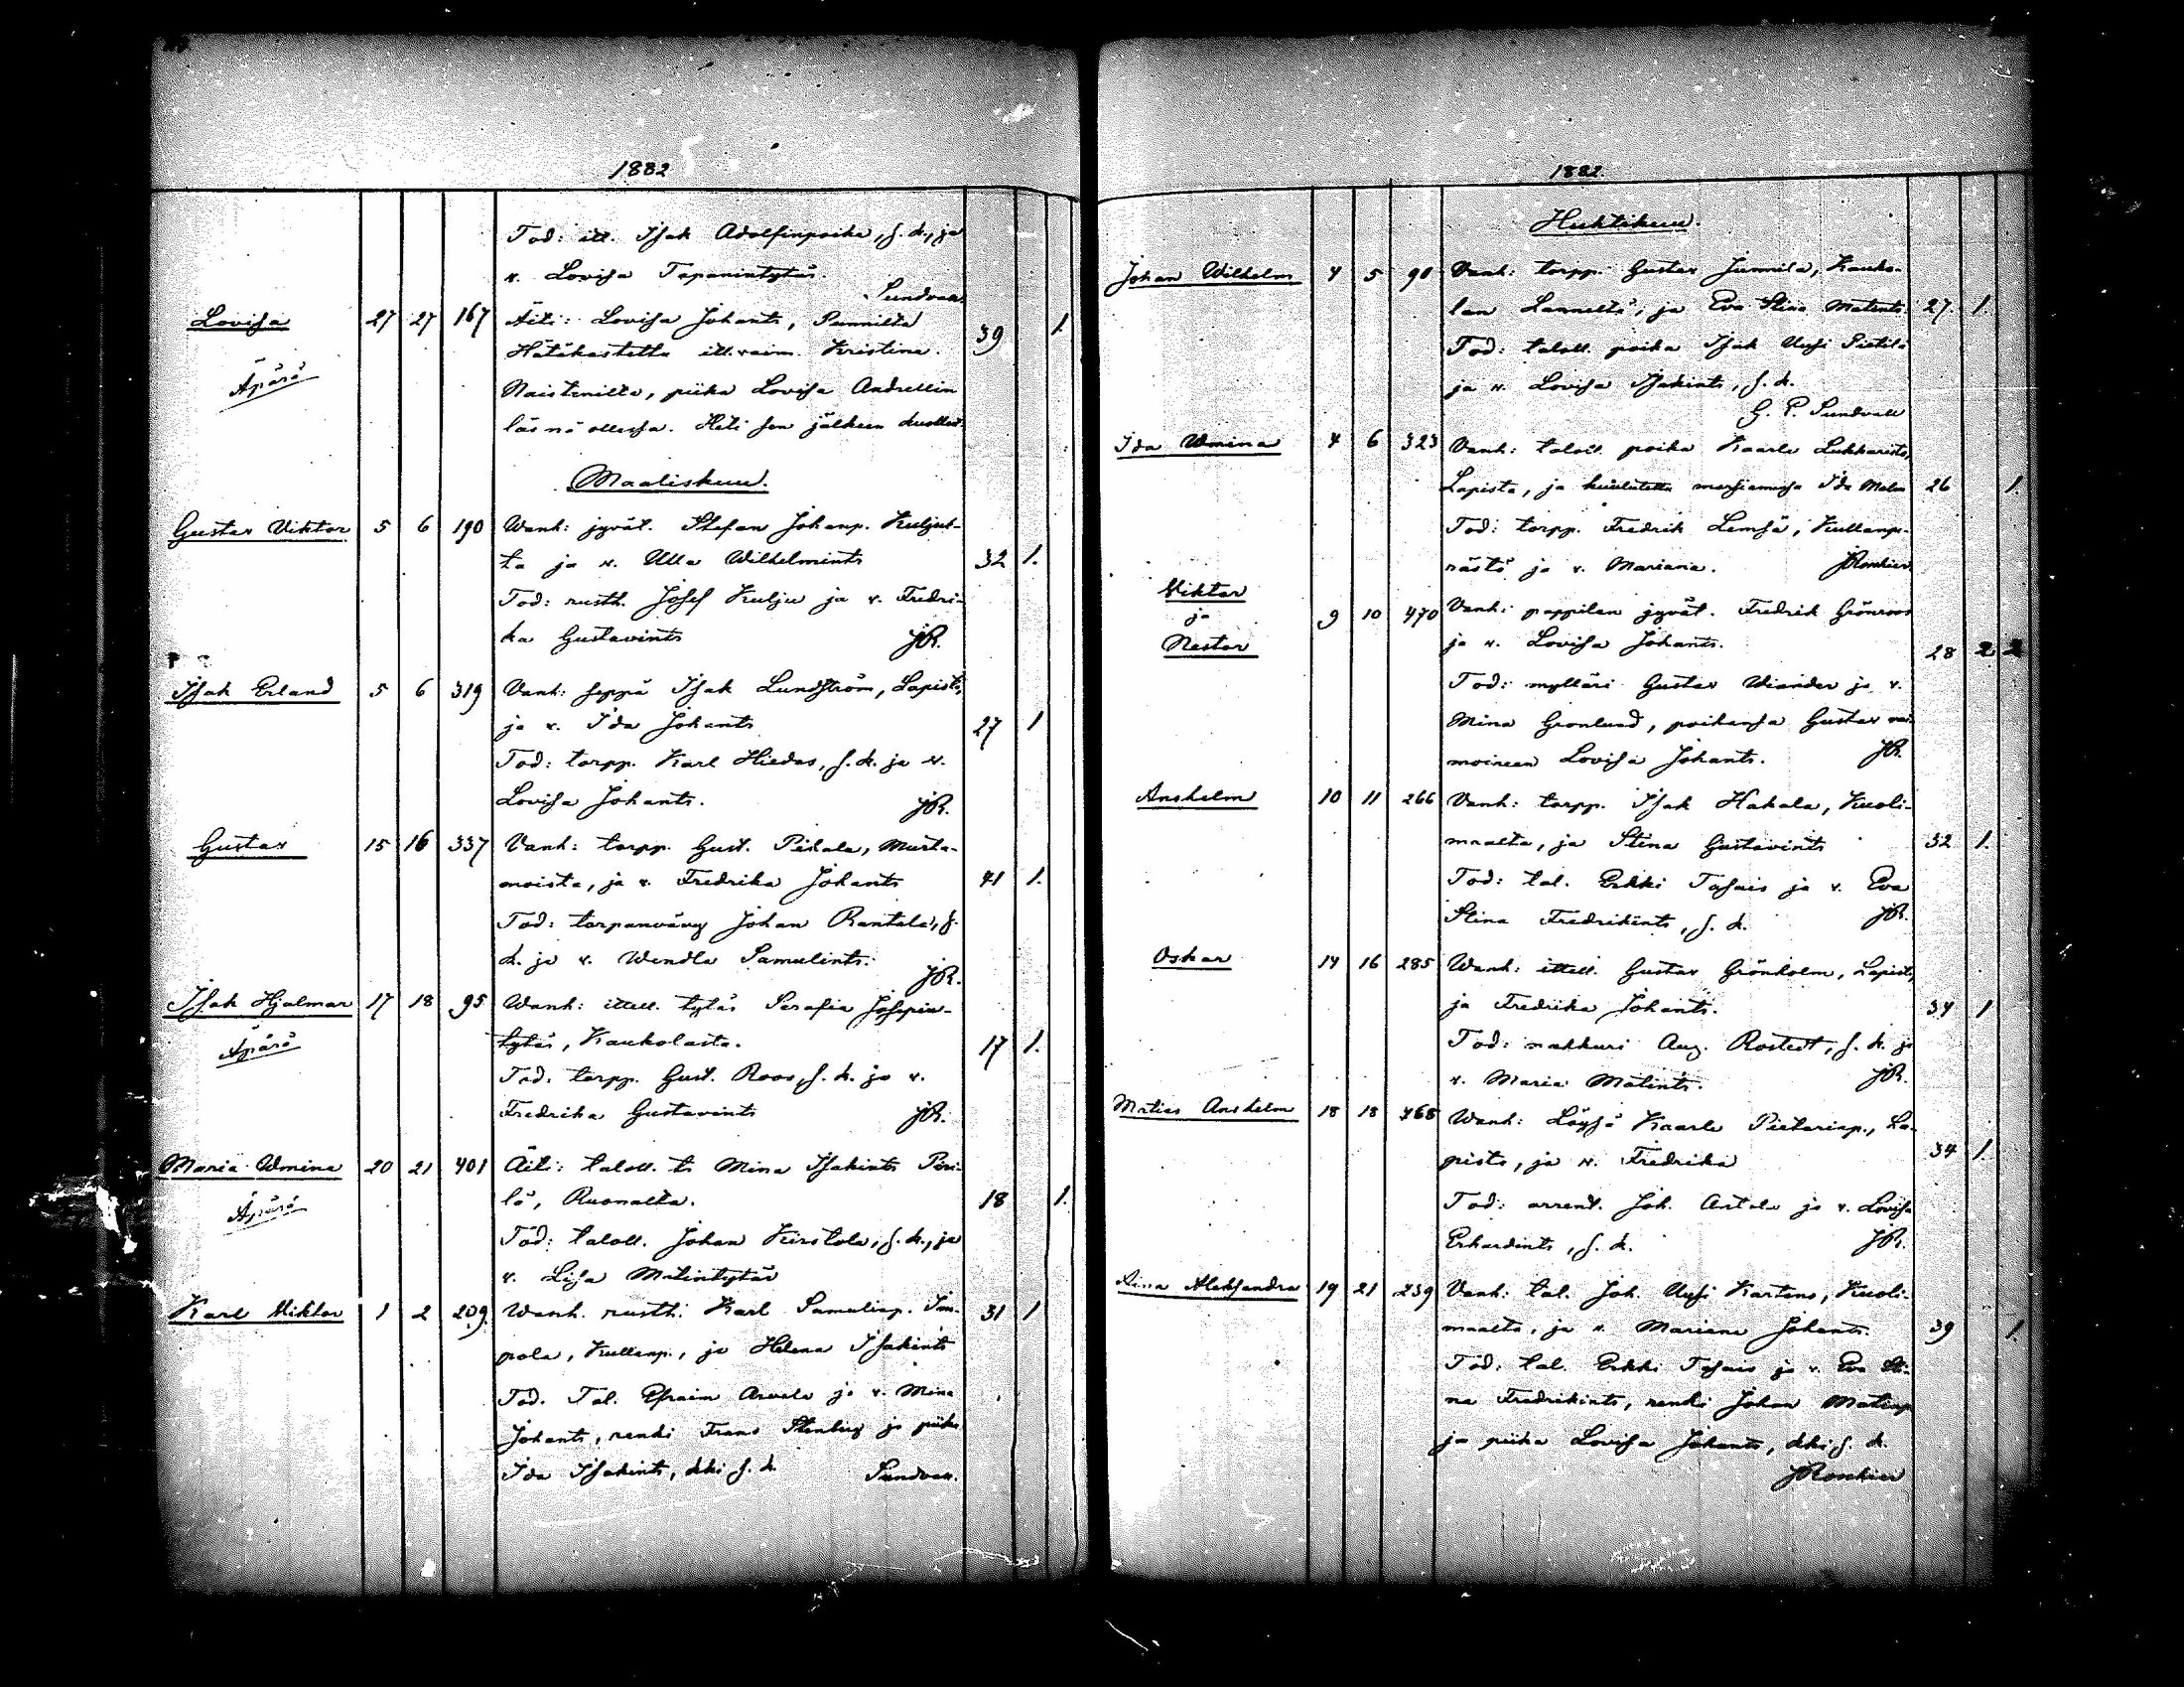 1882
Tod: itt. Isak Adolfinpoika, s. k., ja
v. Lovisa Tapanintytär.
Sundvall
Lovisa 27 27 167 Äiti: Lovisa Johants, Punnilta 39 1.
Hätäkastettu itt. vaim. Kristina
Äpärä Naistenilta, piika Lovisa Andrellin
läsnä ollessa. Heti sen jälkeen kuollut.
Maaliskuu.
Gustav Viktor 5 6 190 Wanh: jyvät. Stefan Johanp. Kuljul-
ta ja v. Ulla Wilhelmints 32 1.
Tod: rusth. Josef Kulju ja v. Fredri-
ka Gustavints JR.
Isak Erland 5 6 319 Vanh: seppä Isak Lundström, Lapista,
ja v. Ida Johants 27 1
Tod: torpp. Karl Hiedas, s. k. ja v.
Lovisa Johants. JR.
Gustav 15 16 337 Vanh: torpp. Gust. Pihala, Murta-
moista, ja v. Fredrika Johants 41 1.
Tod: torpanvävy Johan Rantala, s.
k. ja v. Wendla Samulints. JR.
Isak Hjalmar 17 18 95 Wanh: ittell. tytär Serafia Josepin-
Äpärä tytär, Kaukolasta. 17 1.
Tod. torpp. Gust. Roos, s. k. ja v.
Fredrika Gustavints JR.
Maria Wmina 20 21 401 Äiti: taloll. tr Mina Isakints Peri-
Äpärä lä, Ruonalta. 18 1.
Tod: taloll. Johan Kirstola, s. k., ja
v. Lisa Matintytär
Karl Viktor 1 2 209. Wanh. rusth. Karl Samulinp. Im- 31 1
pola, Kullanp., ja Helena Isakints
Tod. Tal. Efraim Arvela ja v. Mina
Johants, renki Frans Stenberg ja piika
Ida Isakints, kki s. k. Sundvall.
1882.
Huhtikuu.
Johan Wilhelm 4 5 90 Vanh: torpp. Gustav Junnila, Kauko-
lan Lannelta, ja Eva Stina Matints 27. 1.
Tod: taloll. poika Isak Uusi Pietilä
ja v. Lovisa Isakints, s. k.
G. P. Sundvall
Ida Wmina 4 6 323 Vanh: taloll. poika Kaarle Lukkarista,
Lapista, ja kuulutettu morsiamensa Ida Malm 26 1.
Tod: torpp. Fredrik Lemsä, Kullanpe-
rästä ja v. Mariana. JRoschier
Viktor
ja 9 10 470 Vanh: pappilan jyvät. Fredrik Grönroos
Nestor ja v. Lovisa Johants. 28 2 2
Tod: mylläri Gustav Wiander ja v.
Mina Gronlund, poikansa Gustav vai-
moineen Lovisa Johants. JR.
Anshelm 10 11 266 Vanh: torpp. Isak Hakala, Kuoli-
maalta, ja Stina Gustavints 32 1.
Tod: tal. Erkki Tasais ja v. Eva
Stina Fredrikints, s. k. JR.
Oskar 14 16 285 Wanh: ittell. Gustav Grönholm, Lapista,
ja Fredrika Johants. 34 1
Tod: nahkuri Aug. Rostedt, s. k. ja
v. Maria Matints. JR.
Matias Anshelm 18 18 468 Wanh: Löysä Kaarle Pietarinp., La-
pista, ja v. Fredrika 34 1.
Tod: arrent. Joh. Antola ja v. Lovisa
Erhardints, s. k. JR.
Aina Aleksandra 19 21 239 Vanh: tal. Joh. Uusi Kartano, Kuoli-
maalta, ja v. Mariana Johants. 39 1.
Tod: tal. Erkki Tasais ja v. Eva Sti-
na Fredrikints, renki Johan Matinp
ja piika Lovisa Johants, kki s. k.
JRoschier